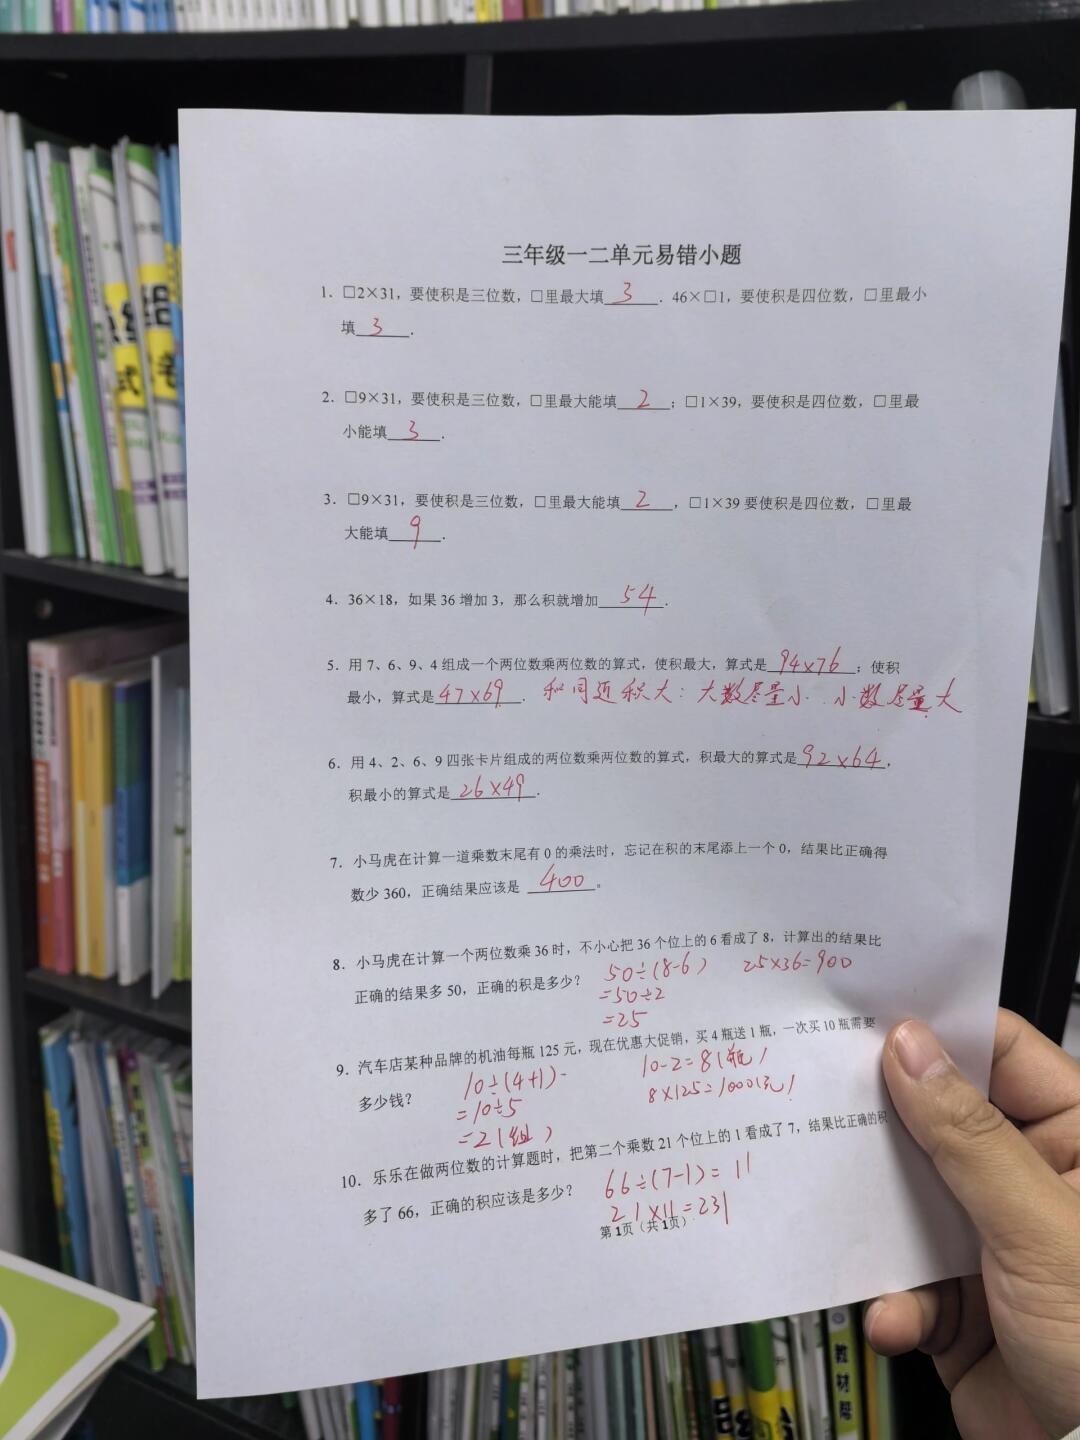 三年级一二单元易错小题
1. □2×31，要使积是三位数，□里最大填 3 . 46×□1，要使积是四位数，□里最小
填 3 .
2. □9×31，要使积是三位数，□里最大能填 2 ；□1×39，要使积是四位数，□里最
小能填 3 .
3. □9×31，要使积是三位数，□里最大能填 2 ，□1×39 要使积是四位数，□里最
大能填 9 .
4. 36×18，如果 36 增加 3，那么积就增加 54 .
5. 用 7、6、9、4 组成一个两位数乘两位数的算式，使积最大，算式是 94×76 ；使积
最小，算式是 47×69 . 和同近积大：大数尽量小．小数尽量大
6. 用 4、2、6、9 四张卡片组成的两位数乘两位数的算式，积最大的算式是 92×64 ，
积最小的算式是 26×49 .
7. 小马虎在计算一道乘数末尾有 0 的乘法时，忘记在积的末尾添上一个 0，结果比正确得
数少 360，正确结果应该是 400 。
8. 小马虎在计算一个两位数乘 36 时，不小心把 36 个位上的 6 看成了 8，计算出的结果比
正确的结果多 50，正确的积是多少？
50÷(8-6)
=50÷2
=25
25×36=900
9. 汽车店某种品牌的机油每瓶 125 元，现在优惠大促销，买 4 瓶送 1 瓶，一次买 10 瓶需要
多少钱？
10÷(4+1)
=10÷5
=2(组)
10-2=8(瓶)
8×125=1000(元)
10. 乐乐在做两位数的计算题时，把第二个乘数 21 个位上的 1 看成了 7，结果比正确的积
多了 66，正确的积应该是多少？
66÷(7-1)=11
21×11=231
第 1页（共 1页）
教材帮